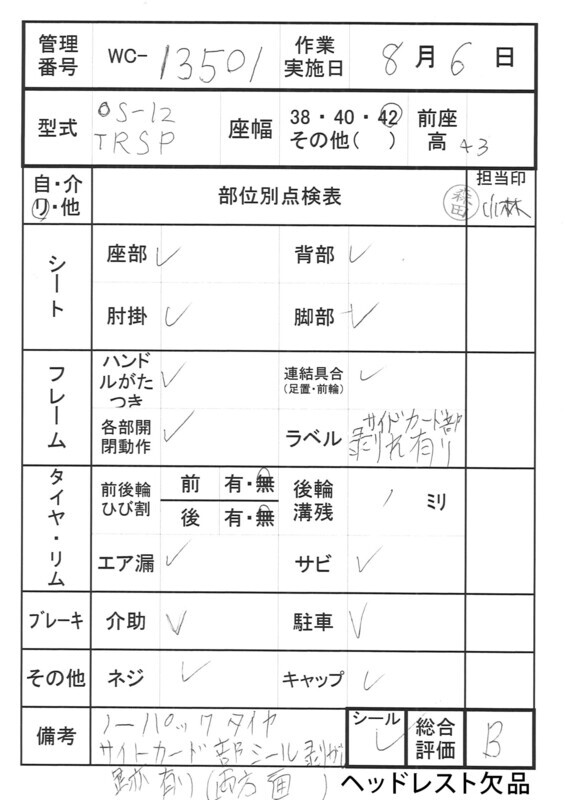 管理番号 WC- 13501 作業実施日 8月6日
型式 OS-12 TRSP 座幅 38・40・42 その他( ) 前座高 43
自・介 リ・他 部位別点検表 担当印 森田 小林
シート 座部 ✓ 背部 ✓
肘掛 ✓ 脚部 ✓
フレーム ハンドルがたつき ✓ 連結具合(足置・前輪) ✓
各部開閉動作 ✓ ラベル サイドカード部 剥れ有り
タイヤ・リム 前後輪ひび割 前 有・無 後輪溝残 1 ミリ
後 有・無
エア漏 ✓ サビ ✓
ブレーキ 介助 ✓ 駐車 ✓
その他 ネジ ✓ キャップ ✓
備考 ノーパックタイヤ シール ✓ 総合評価 B
サイトカード部シール剥がし
跡有り(両方面)
ヘッドレスト欠品